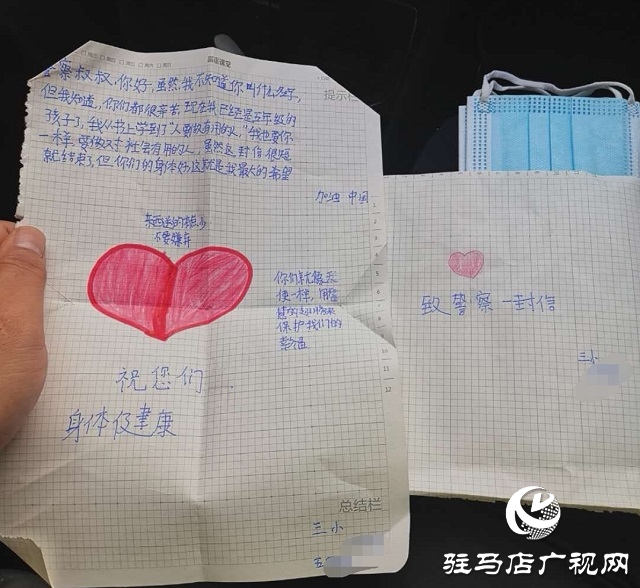 提示栏
警察叔叔,你好,虽然我不知道你叫什么名字,
但我知道,你们都很辛苦,现在我已经是五年级的
孩子了,我从书上学到了"人要做有用的人,"我也要像你
一样,要做对社会有用的人,虽然这封信很短
就结束了,但你们的身体好这就是我最大的希望
加油 中国
东西送的很少
不要嫌弃
你们就像天
使一样,用
保护我们的
幸福
祝您们
身体健康
总结栏
三小
五
致警察一封信
三小
驻马店广视网